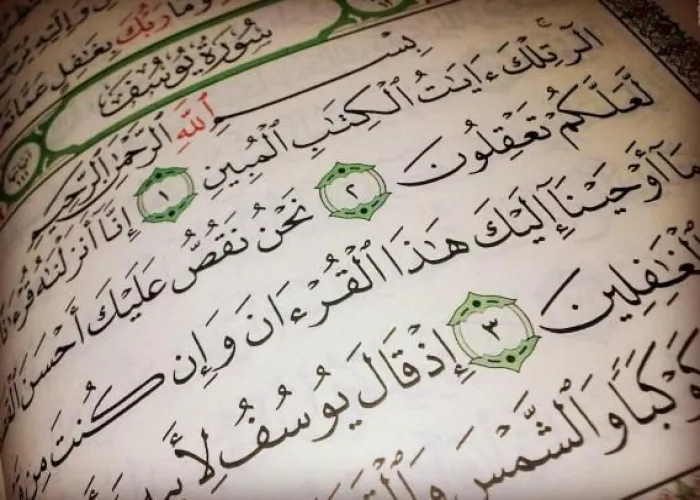 وَمَا رَبُّكَ بِغَٰفِلٍ عَمَّا
سُورَةُ يُوسُفَ
بِسْمِ ٱللَّهِ ٱلرَّحْمَٰنِ ٱلرَّحِيمِ
الٓر ۚ تِلْكَ ءَايَٰتُ ٱلْكِتَٰبِ ٱلْمُبِينِ ١ إِنَّآ أَنزَلْنَٰهُ قُرْءَٰنًا
لَّعَلَّكُمْ تَعْقِلُونَ ٢ نَحْنُ نَقُصُّ عَلَيْكَ أَحْسَنَ
مَآ أَوْحَيْنَآ إِلَيْكَ هَٰذَا ٱلْقُرْءَانَ وَإِن كُنتَ مِن
ٱلْغَٰفِلِينَ ٣ إِذْ قَالَ يُوسُفُ
كَوْكَبًا وَٱلشَّمْسَ